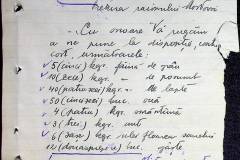 trezirea raionului Moskova
-Cu onoare Vă rugăm
a ne pune la dispoziție, contra
cost, următoarele
✓ 5 (cinci) kgr. făină de grâu
✓ 10 (zece) kgr. - de porumb
✓ 40 (patruzeci) kgr. - de lapte
✓ 50 (cincizeci) buc. ouă
✓ 4 (patru) kgr. smântână
✓ 3 (trei) kgr. unt
✓ 6 (șase) kgr. ulei floarea soarelui
12 (douăsprezece) buc. găște